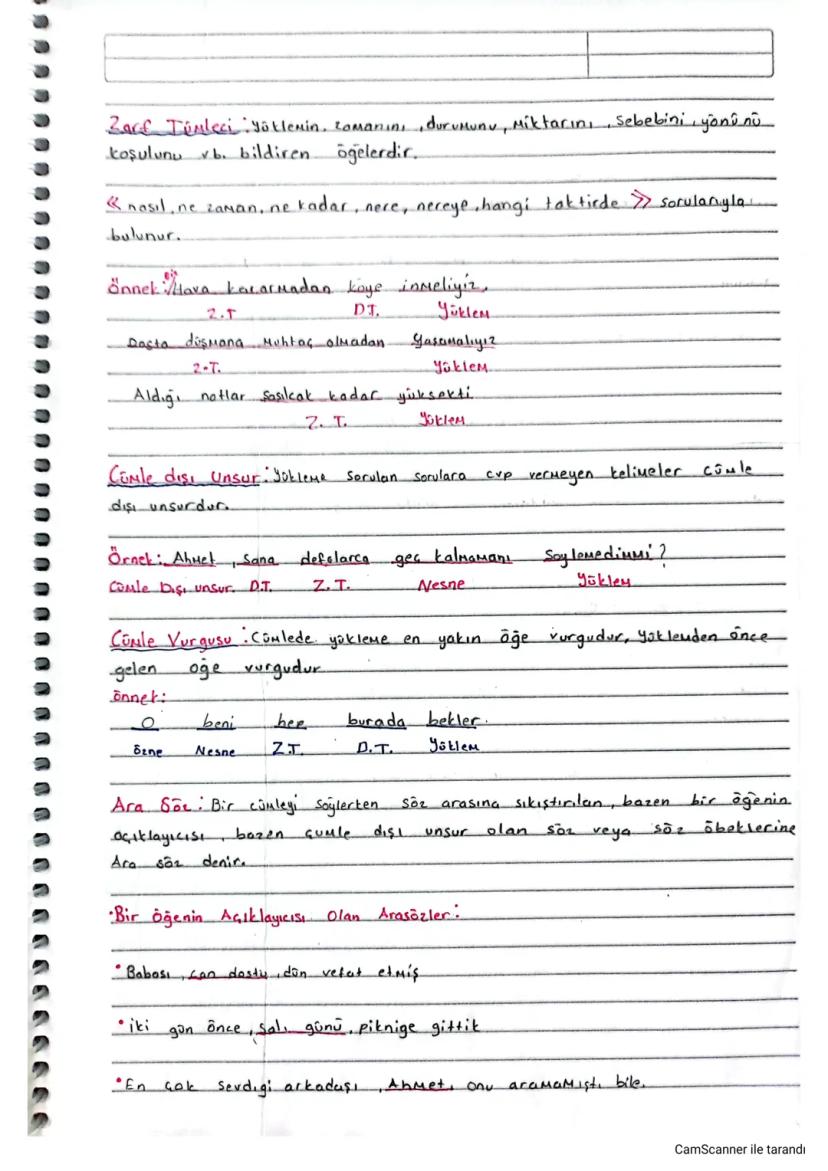 Zarf Tümleci: Yüklemin, zamanını, durumunu, miktarını, sebebini, yönünü
koşulunu vb. bildiren öğelerdir.
« nasıl, ne zaman, ne kadar, nere, nereye, hangi taktirde » sorularıyla
bulunur.
Önnek: Hava kararmadan köye inmeliyiz.
Z.T D.T. Yüklem
Dosta düşmana muhtaç olmadan yaşamalıyız
Z.T. Yüklem
Aldığı notlar şaşılcak kadar yüksekti
Z. T. Yüklem
Cümle dışı Unsur: Yükleme sorulan sorulara cvp vermeyen kelimeler cümle
dışı unsurdur.
Örnek: Ahmet, sana defalarca geç kalmamanı söylemedimmi?
Cümle Dışı unsur. D.T. Z.T. Nesne Yüklem
Cümle Vurgusu: Cümlede yükleme en yakın öğe vurgudur, Yüklemden önce
gelen öğe vurgudur
önnek:
O beni hep burada bekler.
özne Nesne Z.T. D.T. Yüklem
Ara Söz: Bir cümleyi söylerken söz arasına sıkıştırılan, bazen bir öğenin
açıklayıcısı, bazen cümle dışı unsur olan söz veya söz öbeklerine
Ara söz denir.
•Bir öğenin Açıklayıcısı Olan Arasözler:
• Babası, can dostu, dün vefat etmiş
• iki gün önce, Salı günü, pikniğe gittik
• En çok sevdiği arkadaşı, Ahmet, onu aramamıştı bile.
CamScanner ile tarandı